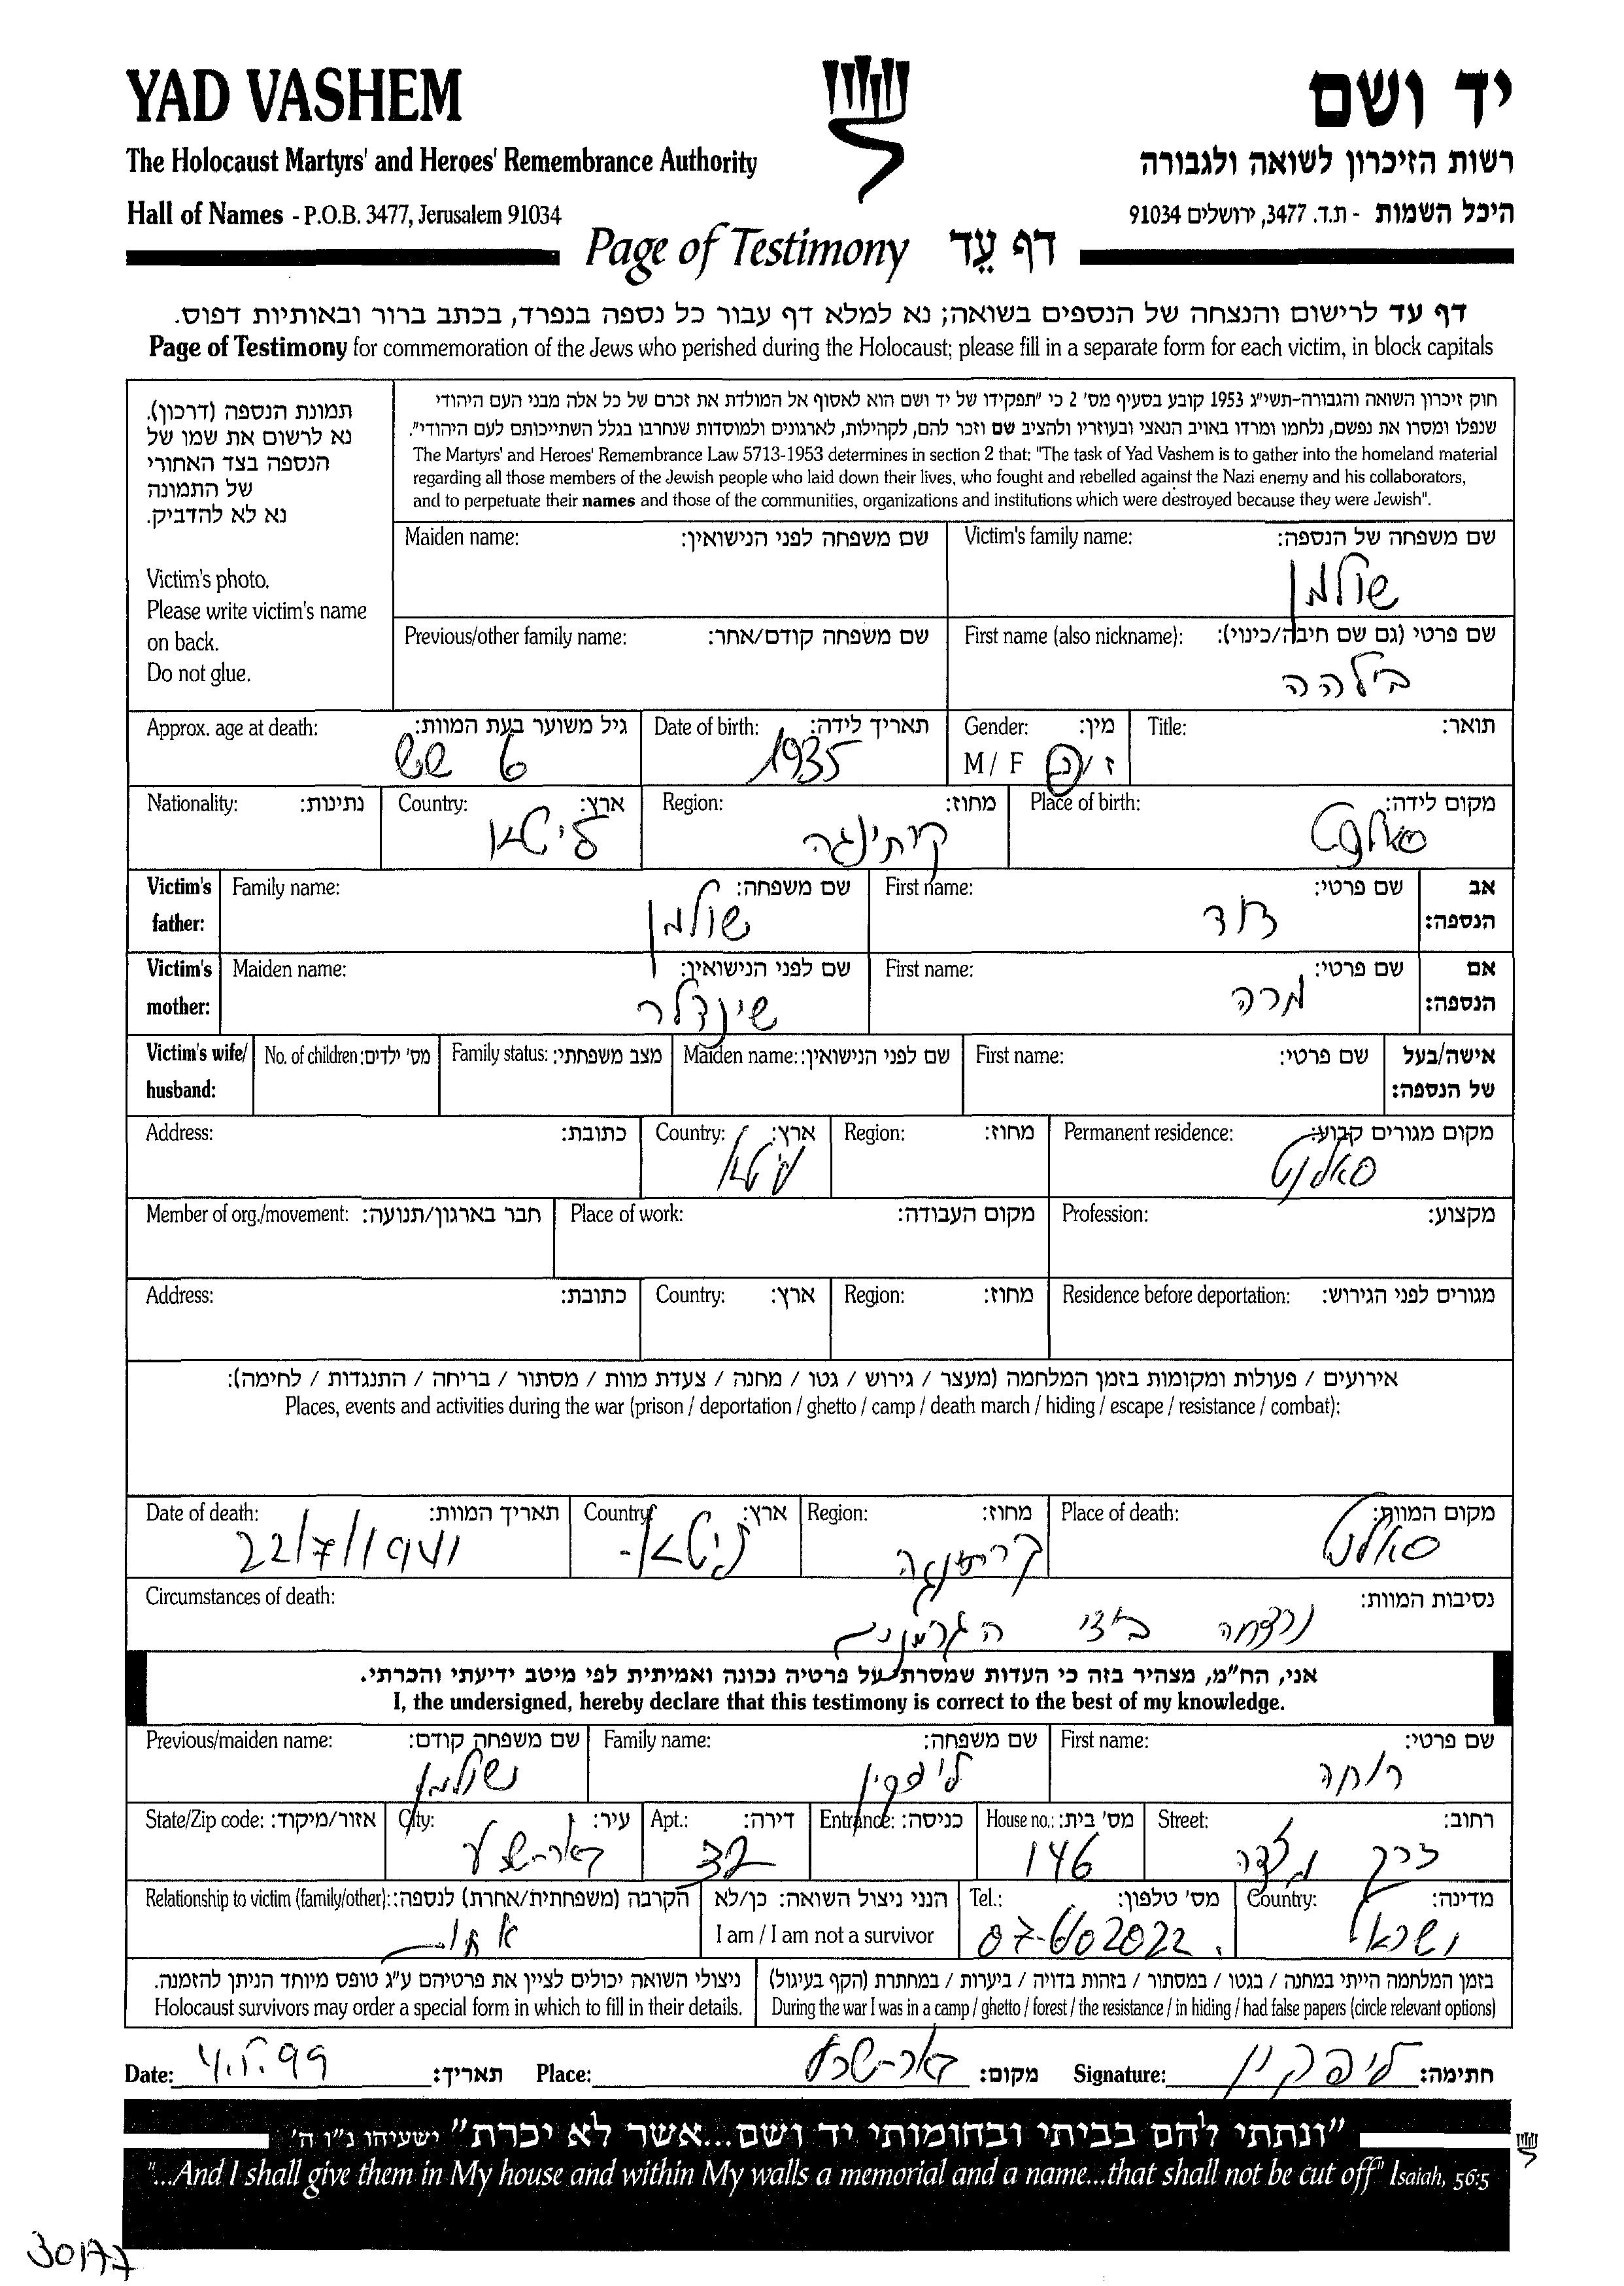 YAD VASHEM
יד ושם
The Holocaust Martyrs' and Heroes' Remembrance Authority
רשות הזיכרון לשואה ולגבורה
Hall of Names - P.O.B. 3477, Jerusalem 91034
היכל השמות - ת.ד. 3477, ירושלים 91034
Page of Testimony דף עֵד
דף עד לרישום והנצחה של הנספים בשואה; נא למלא דף עבור כל נספה בנפרד, בכתב ברור ובאותיות דפוס.
Page of Testimony for commemoration of the Jews who perished during the Holocaust; please fill in a separate form for each victim, in block capitals
תמונת הנספה (דרכון).
נא לרשום את שמו של
הנספה בצד האחורי
של התמונה
נא לא להדביק.
Victim's photo.
Please write victim's name
on back.
Do not glue.
חוק זיכרון השואה והגבורה-תשי"ג 1953 קובע בסעיף מס' 2 כי "תפקידו של יד ושם הוא לאסוף אל המולדת את זכרם של כל אלה מבני העם היהודי
שנפלו ומסרו את נפשם, נלחמו ומרדו באויב הנאצי ובעוזריו ולהציב שם וזכר להם, לקהילות, לארגונים ולמוסדות שנחרבו בגלל השתייכותם לעם היהודי".
The Martyrs' and Heroes' Remembrance Law 5713-1953 determines in section 2 that: "The task of Yad Vashem is to gather into the homeland material
regarding all those members of the Jewish people who laid down their lives, who fought and rebelled against the Nazi enemy and his collaborators,
and to perpetuate their names and those of the communities, organizations and institutions which were destroyed because they were Jewish".
Maiden name: שם משפחה לפני הנישואין:
Victim's family name: שם משפחה של הנספה:
שולמן
Previous/other family name: שם משפחה קודם/אחר:
First name (also nickname): שם פרטי (גם שם חיבה/כינוי):
בילהה
Approx. age at death: גיל משוער בעת המוות:
6 שש
Date of birth: תאריך לידה:
1935
Gender: מין:
M / F ז / נ
Title: תואר:
Nationality: נתינות:
Country: ארץ:
ליטא
Region: מחוז:
קרתינגה
Place of birth: מקום לידה:
סאלנט
Victim's father: Family name: שם משפחה:
שולמן
First name: שם פרטי:
דוד
אב הנספה:
Victim's mother: Maiden name: שם לפני הנישואין:
שינדלר
First name: שם פרטי:
מרה
אם הנספה:
Victim's wife/ husband:
No. of children: מס' ילדים:
Family status: מצב משפחתי:
Maiden name: שם לפני הנישואין:
First name: שם פרטי:
אישה/בעל של הנספה:
Address: כתובת:
Country: ארץ:
ליטא
Region: מחוז:
Permanent residence: מקום מגורים קבוע:
סאלנט
Member of org./movement: חבר בארגון/תנועה:
Place of work: מקום העבודה:
Profession: מקצוע:
Address: כתובת:
Country: ארץ:
Region: מחוז:
Residence before deportation: מגורים לפני הגירוש:
אירועים / פעולות ומקומות בזמן המלחמה (מעצר / גירוש / גטו / מחנה / צעדת מוות / מסתור / בריחה / התנגדות / לחימה):
Places, events and activities during the war (prison / deportation / ghetto / camp / death march / hiding / escape / resistance / combat):
Date of death: תאריך המוות:
22/7/1941
Country: ארץ:
ליטא-
Region: מחוז:
קרתינגה
Place of death: מקום המוות:
סאלנט
Circumstances of death: נסיבות המוות:
נרצחה בידי הגרמנים
אני, הח"מ, מצהיר בזה כי העדות שמסרתי על פרטיה נכונה ואמיתית לפי מיטב ידיעתי והכרתי.
I, the undersigned, hereby declare that this testimony is correct to the best of my knowledge.
Previous/maiden name: שם משפחה קודם:
שולמן
Family name: שם משפחה:
ליפקין
First name: שם פרטי:
רוחה
State/Zip code: אזור/מיקוד:
City: עיר:
באר-שבע
Apt.: דירה:
32
Entrance: כניסה:
House no.: מס' בית:
146
Street: רחוב:
דרך מצדה
Relationship to victim (family/other): הקרבה (משפחתית/אחרת) לנספה:
אחות
הנני ניצול השואה: כן/לא
I am / I am not a survivor
Tel.: מס' טלפון:
07-6102022.
Country: מדינה:
ישראל
ניצולי השואה יכולים לציין את פרטיהם ע"ג טופס מיוחד הניתן להזמנה.
Holocaust survivors may order a special form in which to fill in their details.
בזמן המלחמה הייתי במחנה / בגטו / במסתור / בזהות בדויה / ביערות / במחתרת (הקף בעיגול)
During the war I was in a camp / ghetto / forest / the resistance / in hiding / had false papers (circle relevant options)
Date: 4.5.99 תאריך:
Place: באר-שבע מקום:
Signature: ליפקין חתימה:
"ונתתי להם בביתי ובחומותי יד ושם...אשר לא יכרת" ישעיהו נ"ו ה'
"...And I shall give them in My house and within My walls a memorial and a name...that shall not be cut off" Isaiah, 56:5
30177